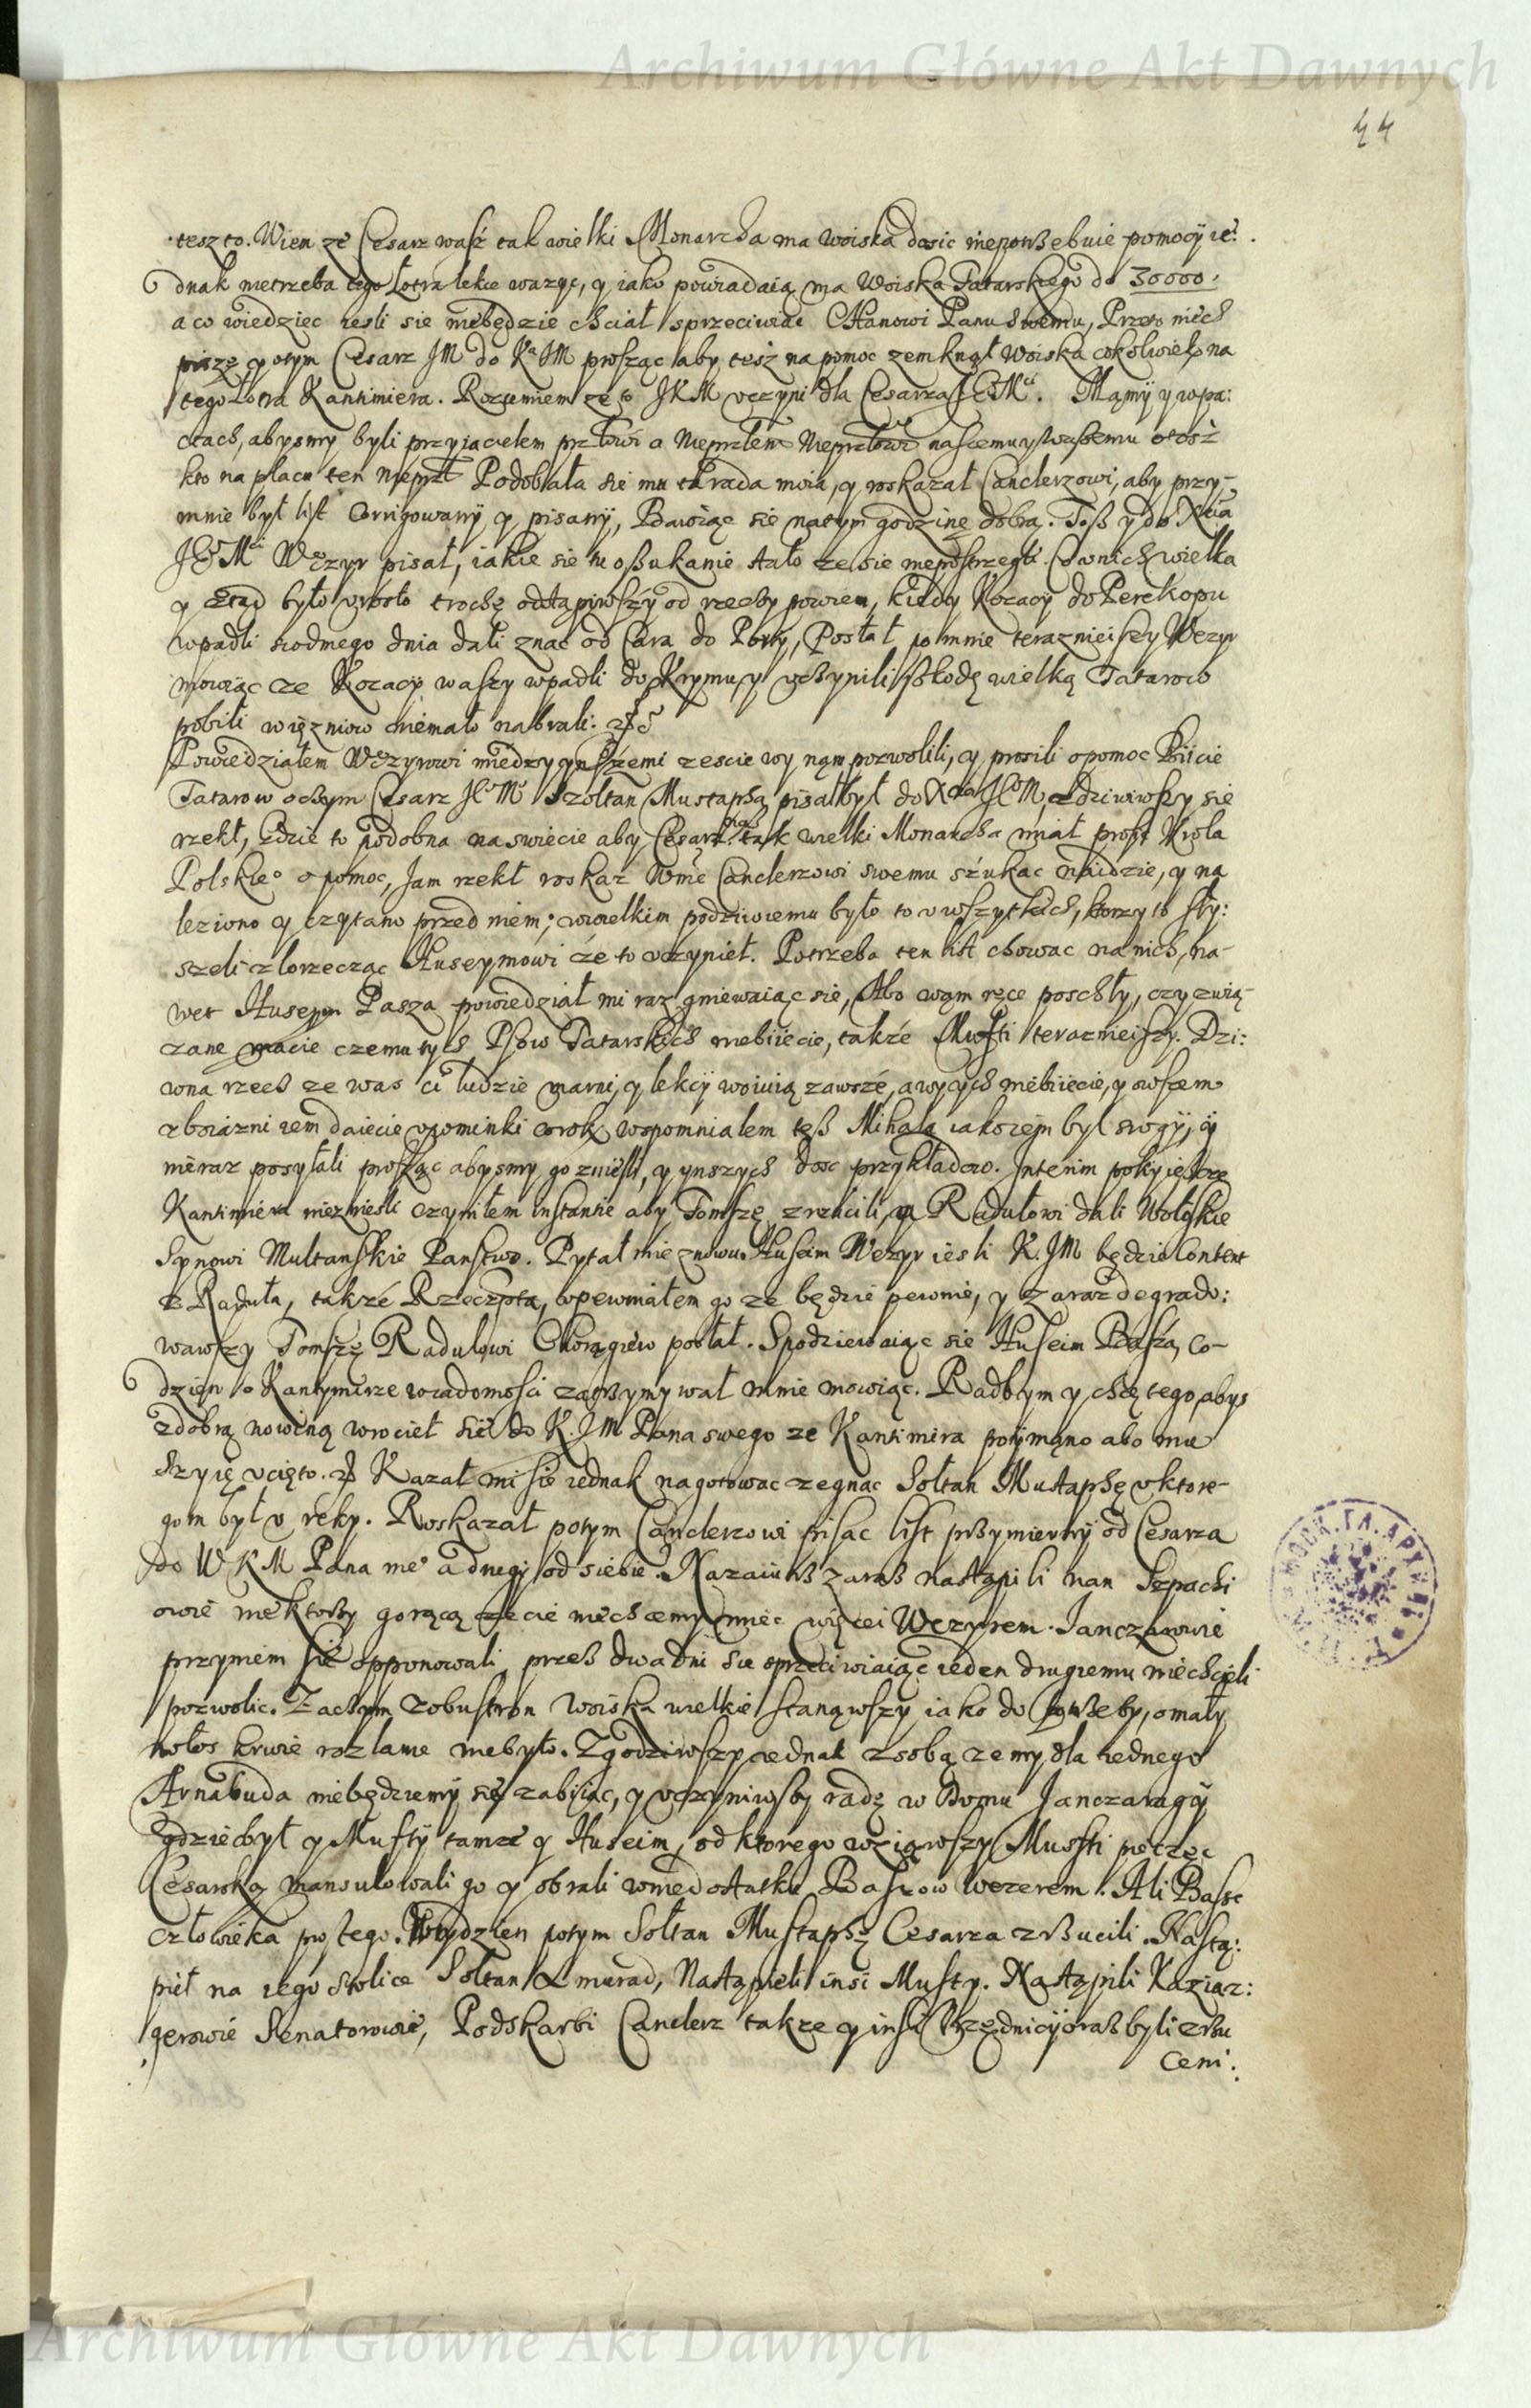 Archiwum Główne Akt Dawnych
44
tesz to. Wiem ze Cesarz wasz tak wielki Monarcha ma woiska dosic niepotrzebuie pomocÿ ie:
dnak nietrzeba tego Łotra lekce wazyc, y iako powiadaią ma Woiska Tatarskiego do 30000.
a co wiedziec iesli sie niebędzie chciał sprzeciwiac Chanowi Panu swemu, Przeto niech
pisze y otym Cesarz JM do Kª JM prosząc aby tesz na pomoc zemknął woiska cokolwiek na
tego Łotra Kantimiera. Rozumiem ze to JKM vczyni dla Cesarza JEº Mci. Mamÿ y wpa:
ctach, abysmy byli przyiacielem przlowi a Nieprzlem Nieprzlowi naszemu y waszemu otosz
kto na placu ten nieprzl Podobała sie mu ta rada moia, y roskazał Canclerzowi, aby przy-
mnie był list Corrigowanÿ y pisanÿ, Bawiąc sie natym godzinę dobrą. Tosz y do Xcia
JEº Mci Wezyr pisał, iakie sie tu oszukanie stało ze sie niepostrzegli. Co wnich wielka
y stąd było vrosło trochę odstąpiwszÿ od rzeczy powiem, kiedy Kozacÿ do Perekopu
wpadli siodmego dnia dali znac od Cara do Porty, Posłał po mnie teraznieiszy Wezyr
mowiąc ze Kozacÿ waszy wpadli do Krymu y vczynili szkodę wielką Tatarow
pobili więzniow niemało nabrali.
Powiedziałem Wezyrowi miedzy ynszemi zescie wy nąm pozwolili, y prosili o pomoc Biicie
Tatarow oczym Cesarz JEº Mº Szołtan Mustapha pisał był do Xcia JEº M, zdziwiwszy sie
rzekł, Gdzie to podobna na swiecie aby Cesarz nasz tak wielki Monarcha miał prosić Krola
Polskieº o pomoc, Jam rzekł roskaz Wmc Canclerzowi swemu szukac naidzie, y na
leziono y czytano przed niem; wwielkim podziwieniu było to v wszytkich, ktorzy to sły:
szeli zlorzecząc Huseymowi że to vczynieł. Potrzeba ten list chowac na nich, na-
wet Huseyn Pasza powiedział mi raz gniewaiąc sie, Abo wąm ręce poschły, czy zwią-
zane macie czemu tych Psow Tatarskich niebiiecie, także Mufti teraznieiszy. Dzi:
wna rzecz ze was ci ludzie marni, y lekcÿ woiuią zawsze, a wy ich niebiiecie, y owszem
zboiazni iem daiecie vpominki corok, wspomniałem tesz Mihała iako iem był srogÿ, ÿ
nieraz posyłali prosząc abysmy go zniesli, y ynszych dosc przykładow. Interim poky ieszcze
Kantimiera nieznieśli czyniłem instantie aby Tomszę zrzucili, a Radułowi dali Wołoskie
Synowi Multanskie Panstwo. Pytał mie znowu Husein Wezyr iesli K. JM będzie Content
z Raduła, takze Rzeczpta, vpewniałem go ze będzie pewnie, y zaraz degrado:
wawszy Tomszę Radułowi Chorągiew posłał. Spodziewaiąc sie Husein Basza, co-
dzien o Kantymirze wiadomosci zatrzymywał mnie mowiąc. Radbym y chcę tego, abys
zdobrą nowiną wrocieł sie do K. JM Pana swego ze Kantimira poÿmąno abo mu
Szyię vcięto. Kazał mi sie iednak nagotowac zegnac Sołtan Mustaphę v ktore-
gom był v ręky. Roskazał potym Canclerzowi pisac list przymiernÿ od Cesarza
do W K M Pana meº a drugi od siebie. Nazaiutrz zaraz nastąpili nan Szpachi
owie niektorzy gorącą zecie niechcemy miec więcei Wezyrem. Janczarowie
przyniem sie opponowali, przez dwa dni sie sprzeciwiaiąc ieden drugiemu niechcieli
pozwolic. Zaczym zobustron Woiska wielkie stanąwszy iako do potrzeby, omały
włos krwie rozlanie niebyło. Zgodziwszy iednak zsobą ze my dla iednego
Arnabuda niebędziemÿ się zabiiac, y vczyniwszy radę w Domu Janczaragÿ
gdzie był y Muftÿ tamze y Husein, od ktorego wziąwszy Muffti pieczęc
Cesarską mansulowali go y obrali wniedostatku Baszow wezerem. Ali Basse
człowieka prostego. Wtydzien potym Sołtan Mustaphę Cesarza zrzucili. Nastą:
pieł na iego stolice Sołtan Amurad, Nastąpieli insi Mufty. Nastąpili Kaziaz:
gerowie Senatorowie, Podskarbi Canclerz takze y inszi Vrzędnicÿ oraz byli zrzu
ceni.
Archiwum Główne Akt Dawnych